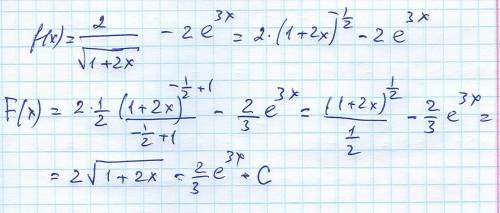 f(x) = 2/√(1+2x) - 2e^{3x} = 2·(1+2x)^{-1/2} - 2e^{3x}
F(x) = 2·1/2 (1+2x)^{-1/2+1}/(-1/2+1) - 2/3 e^{3x} = ((1+2x)^{1/2})/(1/2) - 2/3 e^{3x} =
= 2√(1+2x) - 2/3 e^{3x} + C